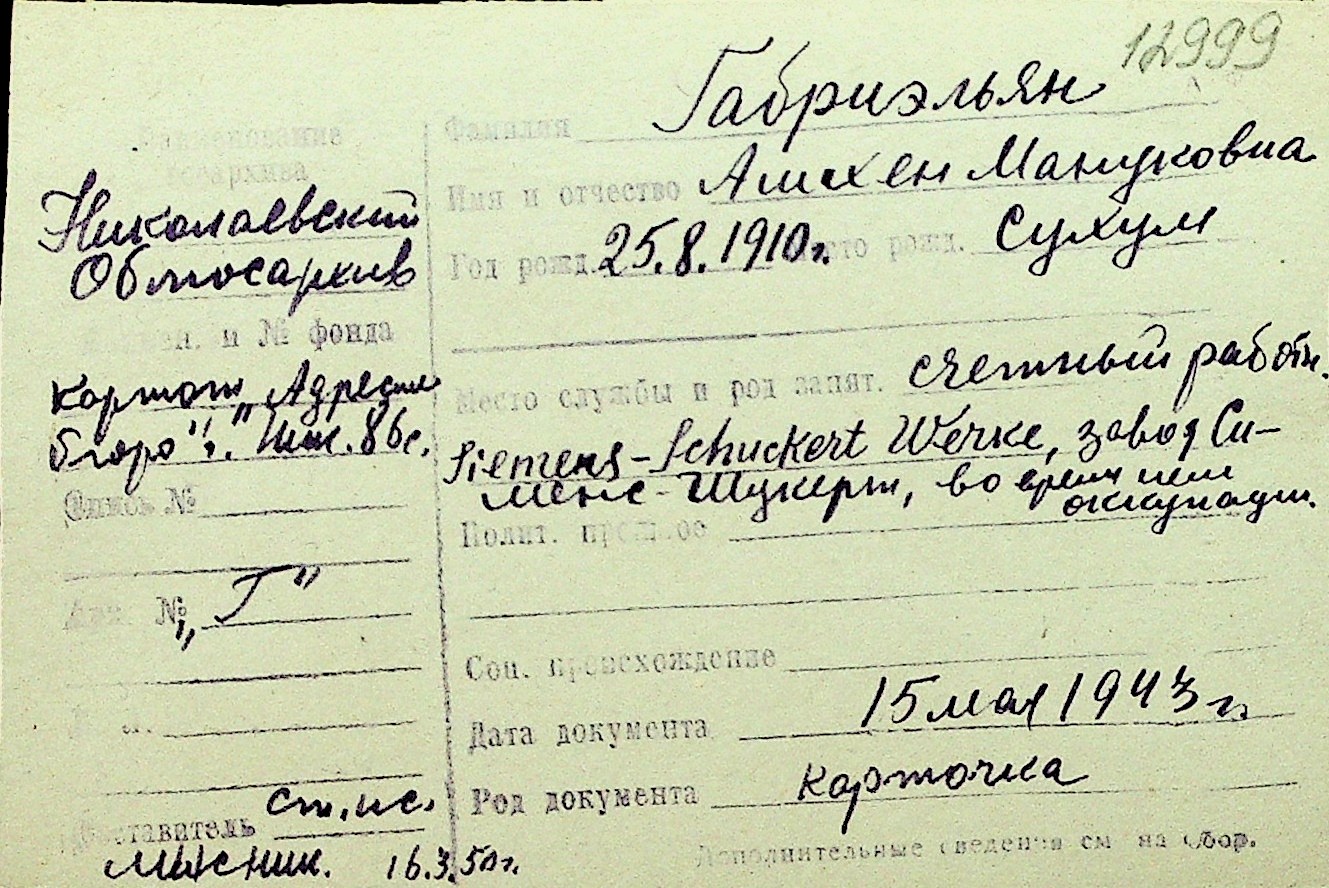 12999
Наименование
госархива
Николаевский
Облгосархив
наимен. и № фонда
картот. „Адресн.
бюро" г.
Опись №
Арх. №
„Г"
Составитель ст. н.с.
16.3.50 г.
Фамилия Габриэльян
Имя и отчество Ашхен Мануковна
Год рожд. 25.8.1910 г. Место рожд. Сухум
Место службы и род занят. счетный работн.
Siemens-Schuckert Werke, завод Си-
менс-Шукерт, во время нем
оккупации.
Полит. прошлое
Соц. происхождение
Дата документа 15 мая 1943 г.
Род документа карточка
Дополнительные сведения см на обор.